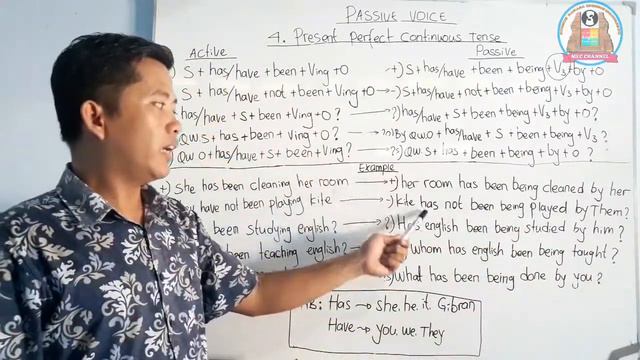 PASSIVE VOICE
4. Present Perfect Continuous Tense
Active Passive
S + has/have + been + Ving + O +) S + has/have + been + being + V3 + by + O
S + has/have + not + been + Ving + O -) S + has/have + not + been + being + V3 + by + O
has/have + S + been + Ving + O? ?) has/have + S + been + being + V3 + by + O?
Q.W.S + has + been + Ving + O? By Q.W.O + has/have + S + been + being + V3?
Q.W O + has/have + S + been + Ving? Q.W S + has + been + being + by + O?
Example
+) She has been cleaning her room +) her room has been being cleaned by her
have not been playing kite -) Kite has not been being played by Them?
been studying english? ?) english been being studied by him?
been teaching english? whom has english been being taught?
what has been being done by you?
Has she. he. it. Gibran
Have you. we. They
MYC CHANNEL